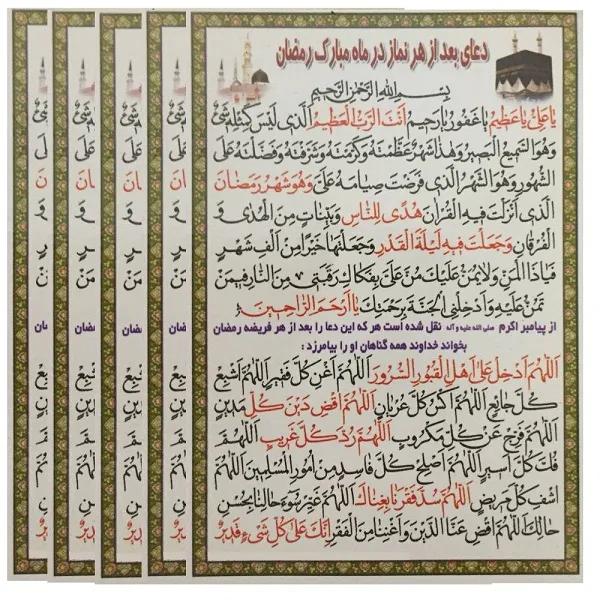 دعای بعد از هر نماز در ماه مبارک رمضان
بِسْمِ اللهِ الرَّحْمٰنِ الرَّحیمِ
یا عَلِیُّ یا عَظیمُ یا غَفُورُ یا رَحیمُ اَنْتَ الرَّبُّ الْعَظیمُ الَّذی لَیْسَ کَمِثْلِهِ شَیْءٌ
وَهُوَ السَّمیعُ الْبَصیرُ وَهٰذا شَهْرٌ عَظَّمْتَهُ وَکَرَّمْتَهُ وَشَرَّفْتَهُ وَفَضَّلْتَهُ عَلَی
الشُّهُورِ وَهُوَ الشَّهْرُ الَّذی فَرَضْتَ صِیامَهُ عَلَیَّ وَهُوَ شَهْرُ رَمَضانَ
الَّذی اَنْزَلْتَ فیهِ الْقُرْانَ هُدًی لِلنّاسِ وَبَیِّناتٍ مِنَ الْهُدٰی وَ
الْفُرْقانِ وَجَعَلْتَ فیهِ لَیْلَةَ الْقَدْرِ وَجَعَلْتَها خَیْراً مِنْ اَلْفِ شَهْرٍ
فَیاذَا الْمَنِّ وَلایُمَنُّ عَلَیْکَ مُنَّ عَلَیَّ بِفَکاکِ رَقَبَتی مِنَ النّارِ فیمَنْ
تَمُنُّ عَلَیْهِ وَاَدْخِلْنِی الْجَنَّةَ بِرَحْمَتِکَ یا اَرْحَمَ الرّاحِمینَ
از پیامبر اکرم صلی الله علیه و آله نقل شده است هر که این دعا را بعد از هر فریضه رمضان
بخواند خداوند همه گناهان او را بیامرزد :
اَللّٰهُمَّ اَدْخِلْ عَلٰی اَهْلِ الْقُبُورِ السُّرُورَ اَللّٰهُمَّ اَغْنِ کُلَّ فَقیرٍ اَللّٰهُمَّ اَشْبِعْ
کُلَّ جائِعٍ اَللّٰهُمَّ اکْسُ کُلَّ عُرْیانٍ اَللّٰهُمَّ اقْضِ دَیْنَ کُلِّ مَدینٍ
اَللّٰهُمَّ فَرِّجْ عَنْ کُلِّ مَکْرُوبٍ اَللّٰهُمَّ رُدَّ کُلَّ غَریبٍ اَللّٰهُمَّ
فُکَّ کُلَّ اَسیرٍ اَللّٰهُمَّ اَصْلِحْ کُلَّ فاسِدٍ مِنْ اُمُورِ الْمُسْلِمینَ اَللّٰهُمَّ
اشْفِ کُلَّ مَریضٍ اَللّٰهُمَّ سُدَّ فَقْرَنا بِغِناکَ اَللّٰهُمَّ غَیِّرْ سُوءَ حالِنا بِحُسْنِ
حالِکَ اَللّٰهُمَّ اقْضِ عَنَّا الدَّیْنَ وَاَغْنِنا مِنَ الْفَقْرِ اِنَّکَ عَلٰی کُلِّ شَیْءٍ قَدیرٌ